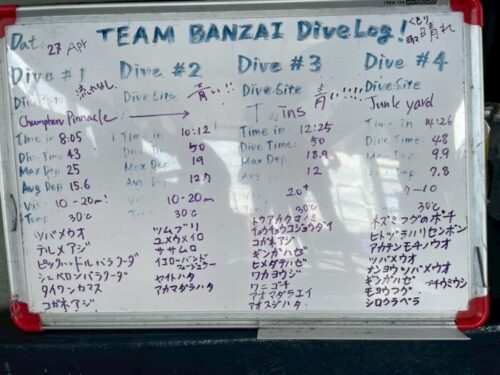 Dat. 27 Apr
TEAM BANZAI DiveLog!
くもり 時々 晴れ
Dive #1
流れなし
Chumphon Pinnacle
Time in 8:05
Div. Time 43
Max Dep 25
Avg Dep 15.6
Vis 10-20m
Temp 30℃
ツバメウオ
テルメアジ
ピックハンドルバラクーダ
シェベロンバラクーダ
タイワンカマス
コガネアジ
Dive #2
Dive Site 青い!!
→
10:12
50
Max Dep 19
12.7
10-20m
30℃
ツムブリ
ユメウメイロ
ササムロ
イエローバンド
フュージュラー
ヤイトハタ
アカマダラハタ
Dive #3
Dive Site 青い!!!!
Twins
Time in: 12:25
Dive Time: 50
Max Dep: 18.9
12
20+
30℃
トウアカクマノミ
コガネアジ
ギンガハゼ
ヒメダテハゼ
ワカヨウジ
ワニゴチ
アオマダラエイ
アオスジハタ
Dive #4
Dive Site
Junk yard
14:26
Dive Time: 48
Max Dep 9.9
7.8
7-10
30℃
ネズミフグのポチ
ヒトヅラハリセンボン
アカテンモチノウオ
ツバメウオ
ナンヨウツバメウオ
ギンガハゼ
モヨウフグ
シロクラベラ